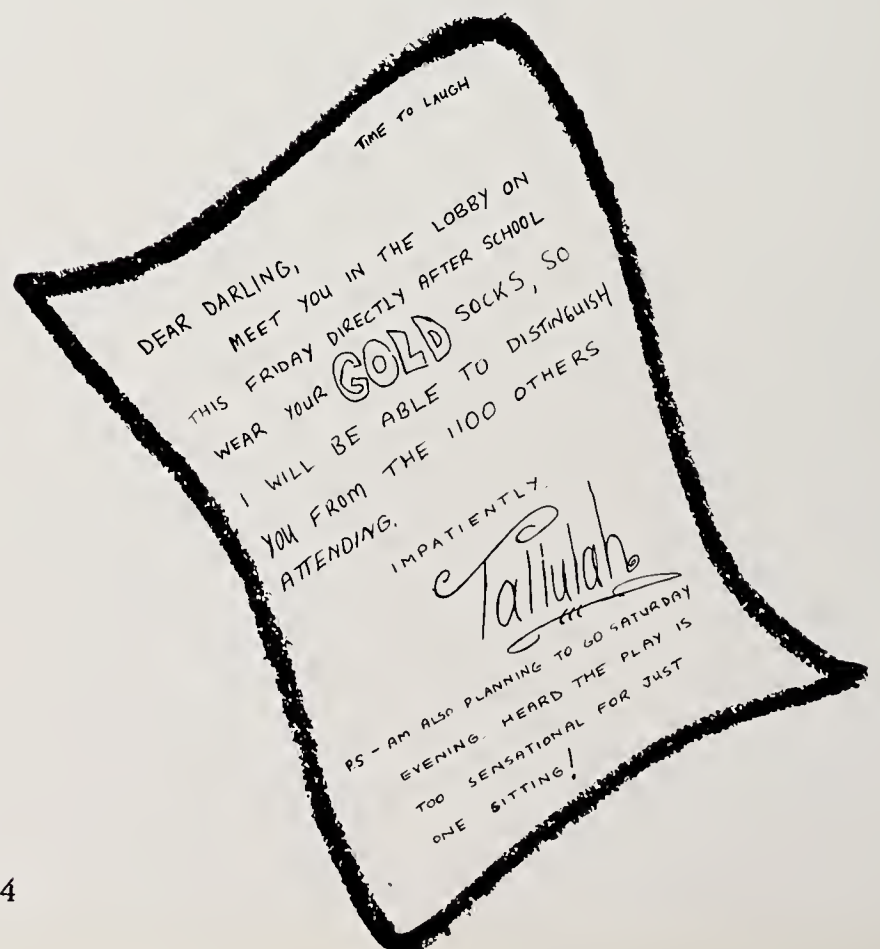 TIME TO LAUGH
DEAR DARLING,
MEET YOU IN THE LOBBY ON
THIS FRIDAY DIRECTLY AFTER SCHOOL
WEAR YOUR GOLD SOCKS, SO
I WILL BE ABLE TO DISTINGUISH
YOU FROM THE 1100 OTHERS
ATTENDING.
IMPATIENTLY.
Tallulah
PS - AM ALSO PLANNING TO GO SATURDAY
EVENING. HEARD THE PLAY IS
TOO SENSATIONAL FOR JUST
ONE SITTING!
4